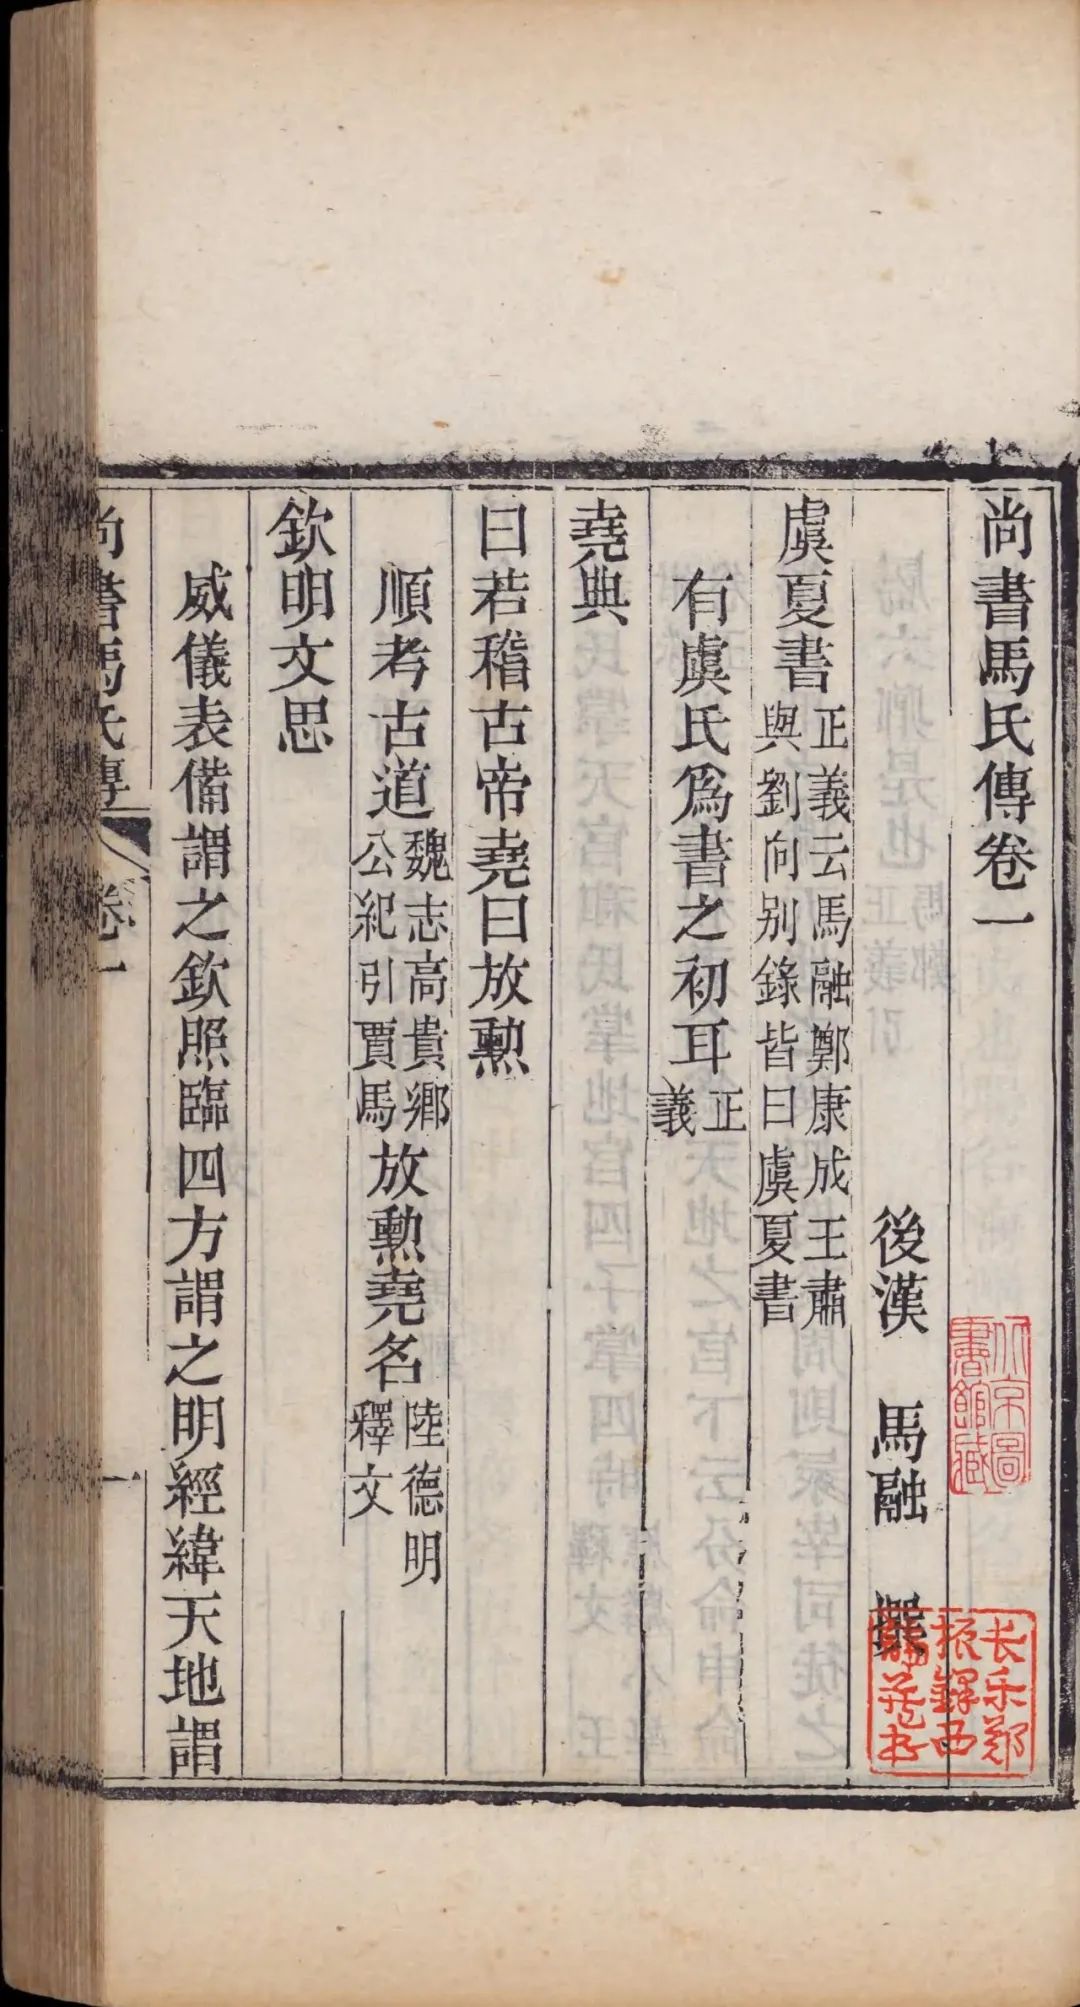 尚書馬氏傳卷一
後漢 馬融 撰
虞夏書正義云馬融鄭康成王肅與劉向別錄皆曰虞夏書
有虞氏爲書之初耳正義
堯典
曰若稽古帝堯曰放勲
順考古道魏志高貴鄉公紀引賈馬放勲堯名陸德明釋文
欽明文思
威儀表備謂之欽照臨四方謂之明經緯天地謂
尚書馬氏傳 卷一 一
北京圖書館藏
长乐郑振鐸西諦藏书